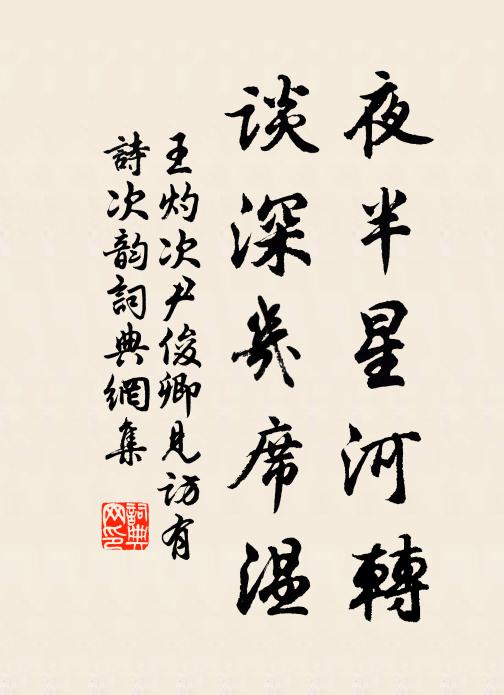 夜半星河轉
談深幾席溫
王灼次尹俊卿見訪有
詩次韵詞典網集
詞典网印